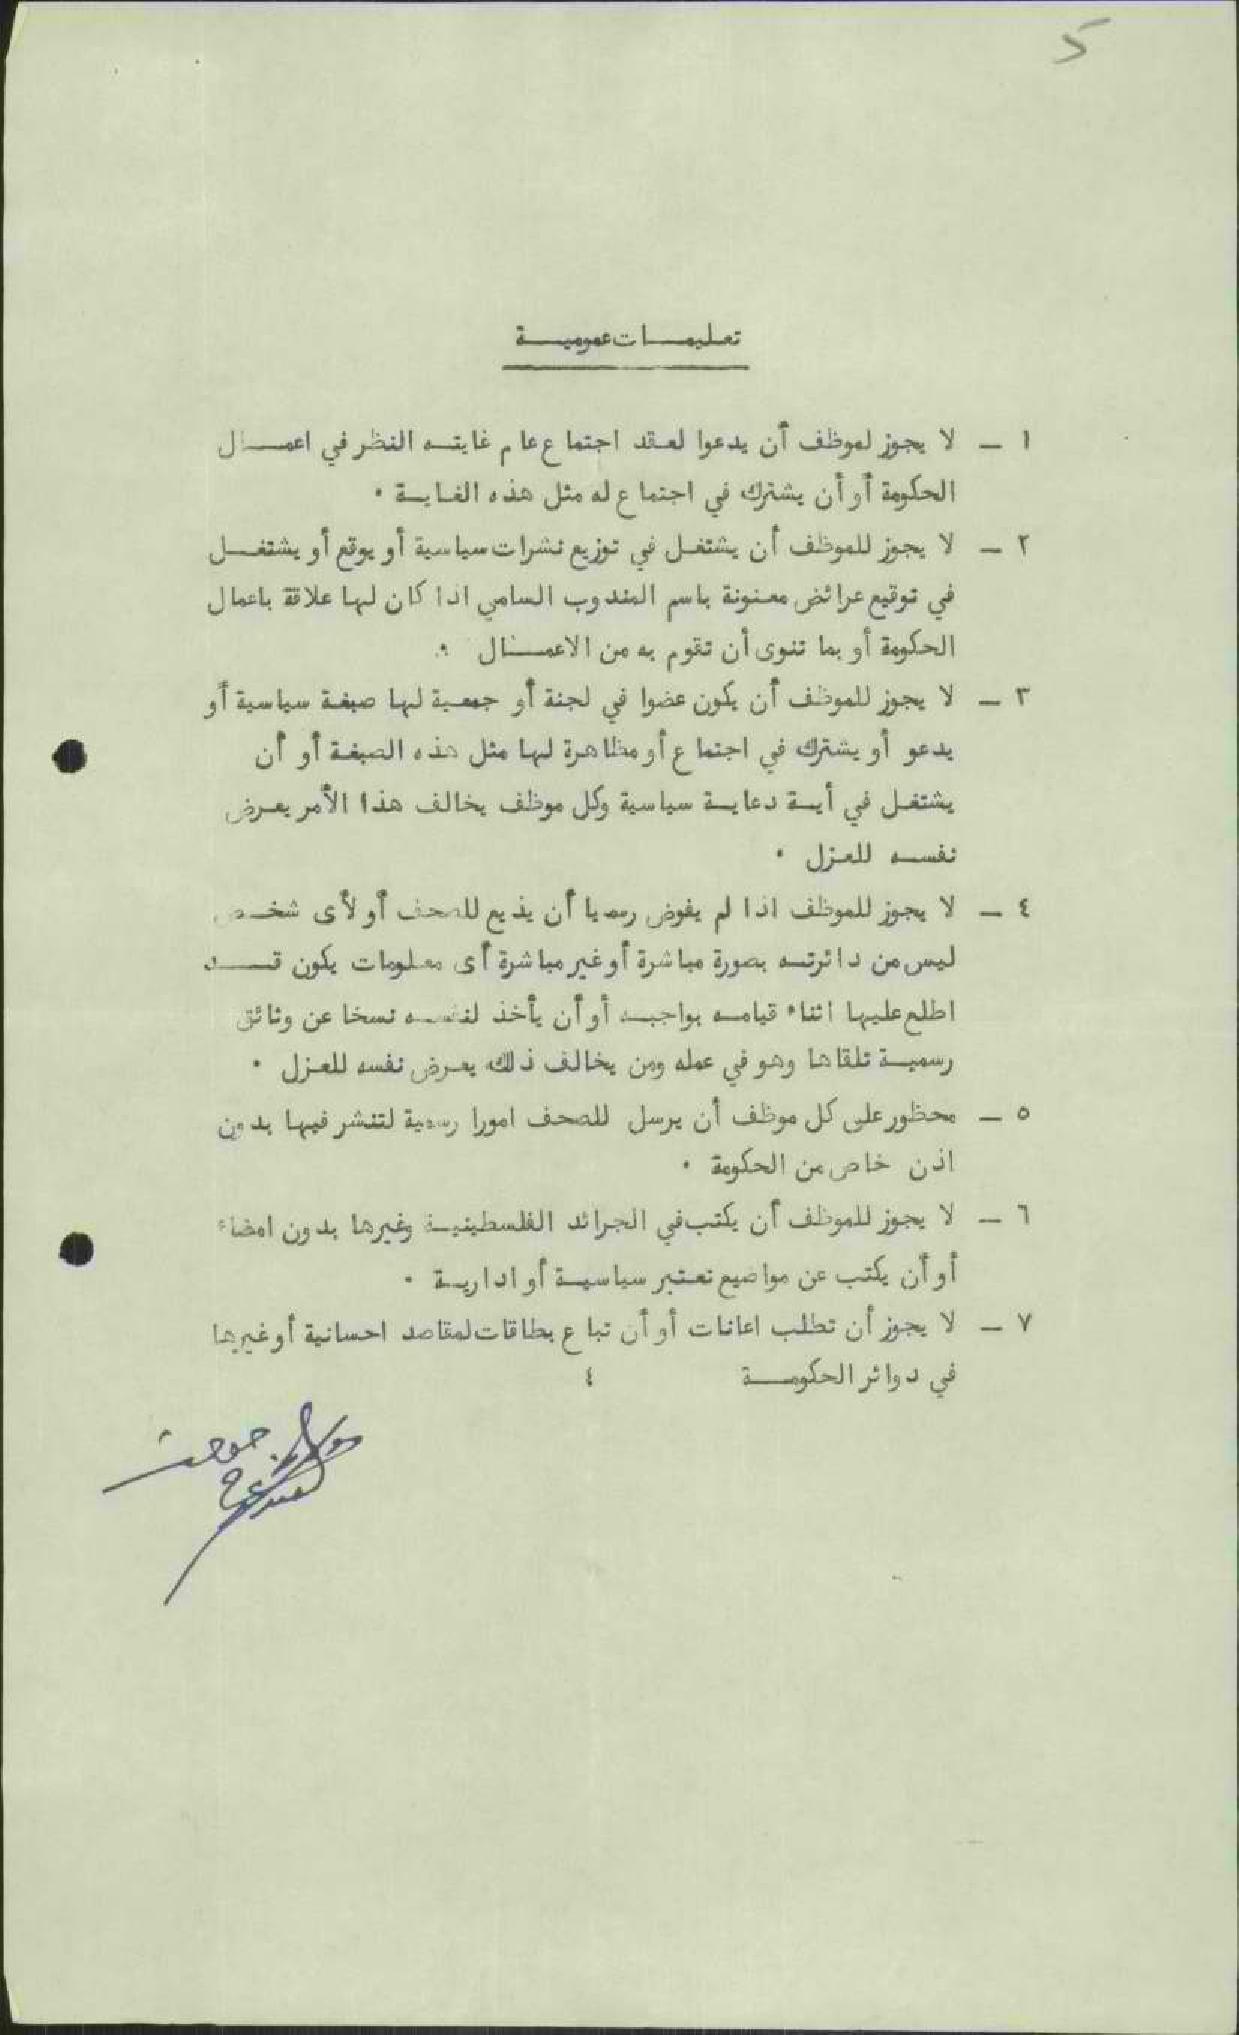 تعليمات عمومية
١ - لا يجوز لموظف أن يدعوا لعقد اجتماع عام غايته النظر في اعمال
الحكومة أو أن يشترك في اجتماع له مثل هذه الغاية •
٢ - لا يجوز للموظف أن يشتغل في توزيع نشرات سياسية أو يوقع أو يشتغل
في توقيع عرائض معنونة باسم المندوب السامي اذا كان لها علاقة باعمال
الحكومة أو بما تنوى أن تقوم به من الاعمال •
٣ - لا يجوز للموظف أن يكون عضوا في لجنة أو جمعية لها صبغة سياسية أو
يدعو أو يشترك في اجتماع أو مظاهرة لها مثل هذه الصبغة أو أن
يشتغل في أية دعاية سياسية وكل موظف يخالف هذا الأمر يعرض
نفسه للعزل •
٤ - لا يجوز للموظف اذا لم يفوض رسميا أن يذيع للصحف أو لأى شخص
ليس من دائرته بصورة مباشرة أو غير مباشرة أى معلومات يكون قد
اطلع عليها اثناء قيامه بواجبه أو أن يأخذ لنفسه نسخا عن وثائق
رسمية تلقاها وهو في عمله ومن يخالف ذلك يعرض نفسه للعزل •
٥ - محظور على كل موظف أن يرسل للصحف امورا رسمية لتنشر فيها بدون
اذن خاص من الحكومة •
٦ - لا يجوز للموظف أن يكتب في الجرائد الفلسطينية وغيرها بدون امضاء
أو أن يكتب عن مواضيع تعتبر سياسية أو ادارية •
٧ - لا يجوز أن تطلب اعانات أو أن تباع بطاقات لمقاصد احسانية أو غيرها
في دوائر الحكومة ٤